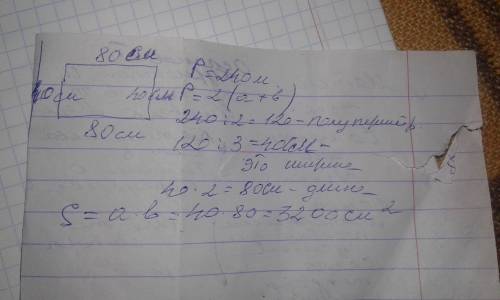 80см
P=240м
40см 40см
P=2(a+b)
80см
240:2=120-полупериметр
120:3=40см-
это ширина
40·2=80см-длина
S=a·b=40·80=3200см²